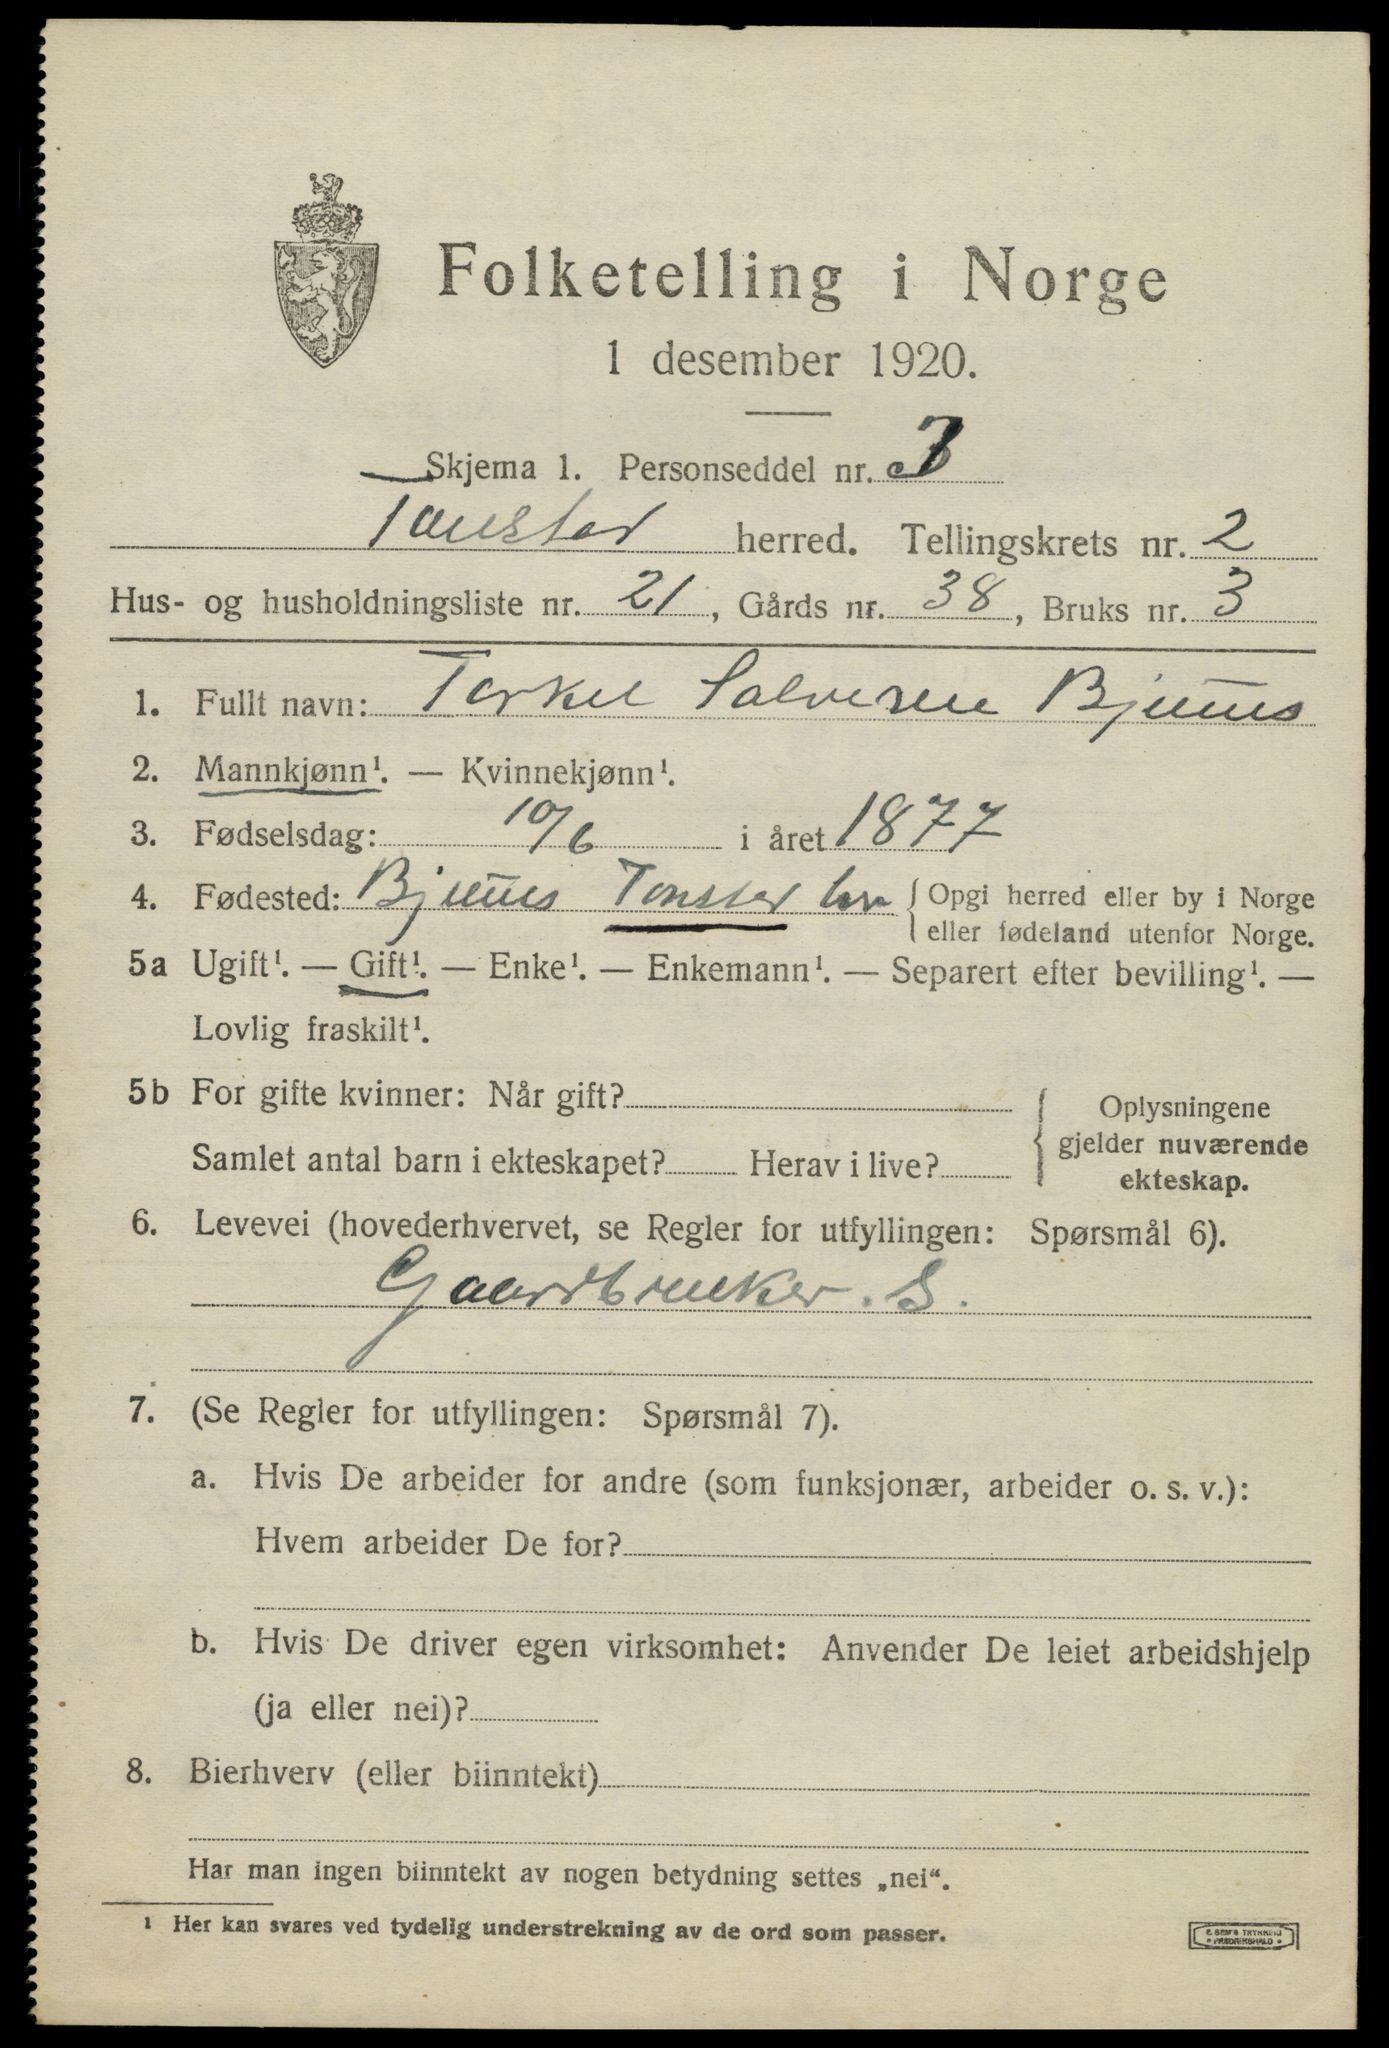 Folketelling i Norge
1 desember 1920.
Skjema 1. Personseddel nr. 3
Tonstad herred. Tellingskrets nr. 2
Hus- og husholdningsliste nr. 21, Gårds nr. 38, Bruks nr. 3
1. Fullt navn: Torkel Salvesen Bjunes
2. Mannkjønn¹. — Kvinnekjønn¹.
3. Fødselsdag: 10/6 i året 1877
4. Fødested: Bjunes Tonstad { Opgi herred eller by i Norge
eller fødeland utenfor Norge.
5a Ugift¹. — Gift¹. — Enke¹. — Enkemann¹. — Separert efter bevilling¹. —
Lovlig fraskilt¹.
5b For gifte kvinner: Når gift?
Samlet antal barn i ekteskapet? Herav i live?
Oplysningene
gjelder nuværende
ekteskap.
6. Levevei (hovederhvervet, se Regler for utfyllingen: Spørsmål 6).
Gaardbruker. S.
7. (Se Regler for utfyllingen: Spørsmål 7).
a. Hvis De arbeider for andre (som funksjonær, arbeider o. s. v.):
Hvem arbeider De for?
b. Hvis De driver egen virksomhet: Anvender De leiet arbeidshjelp
(ja eller nei)?
8. Bierhverv (eller biinntekt)
Har man ingen biinntekt av nogen betydning settes „nei“.
¹ Her kan svares ved tydelig understrekning av de ord som passer.
E. SEM'S TRYKKERI
FREDRIKSHALD